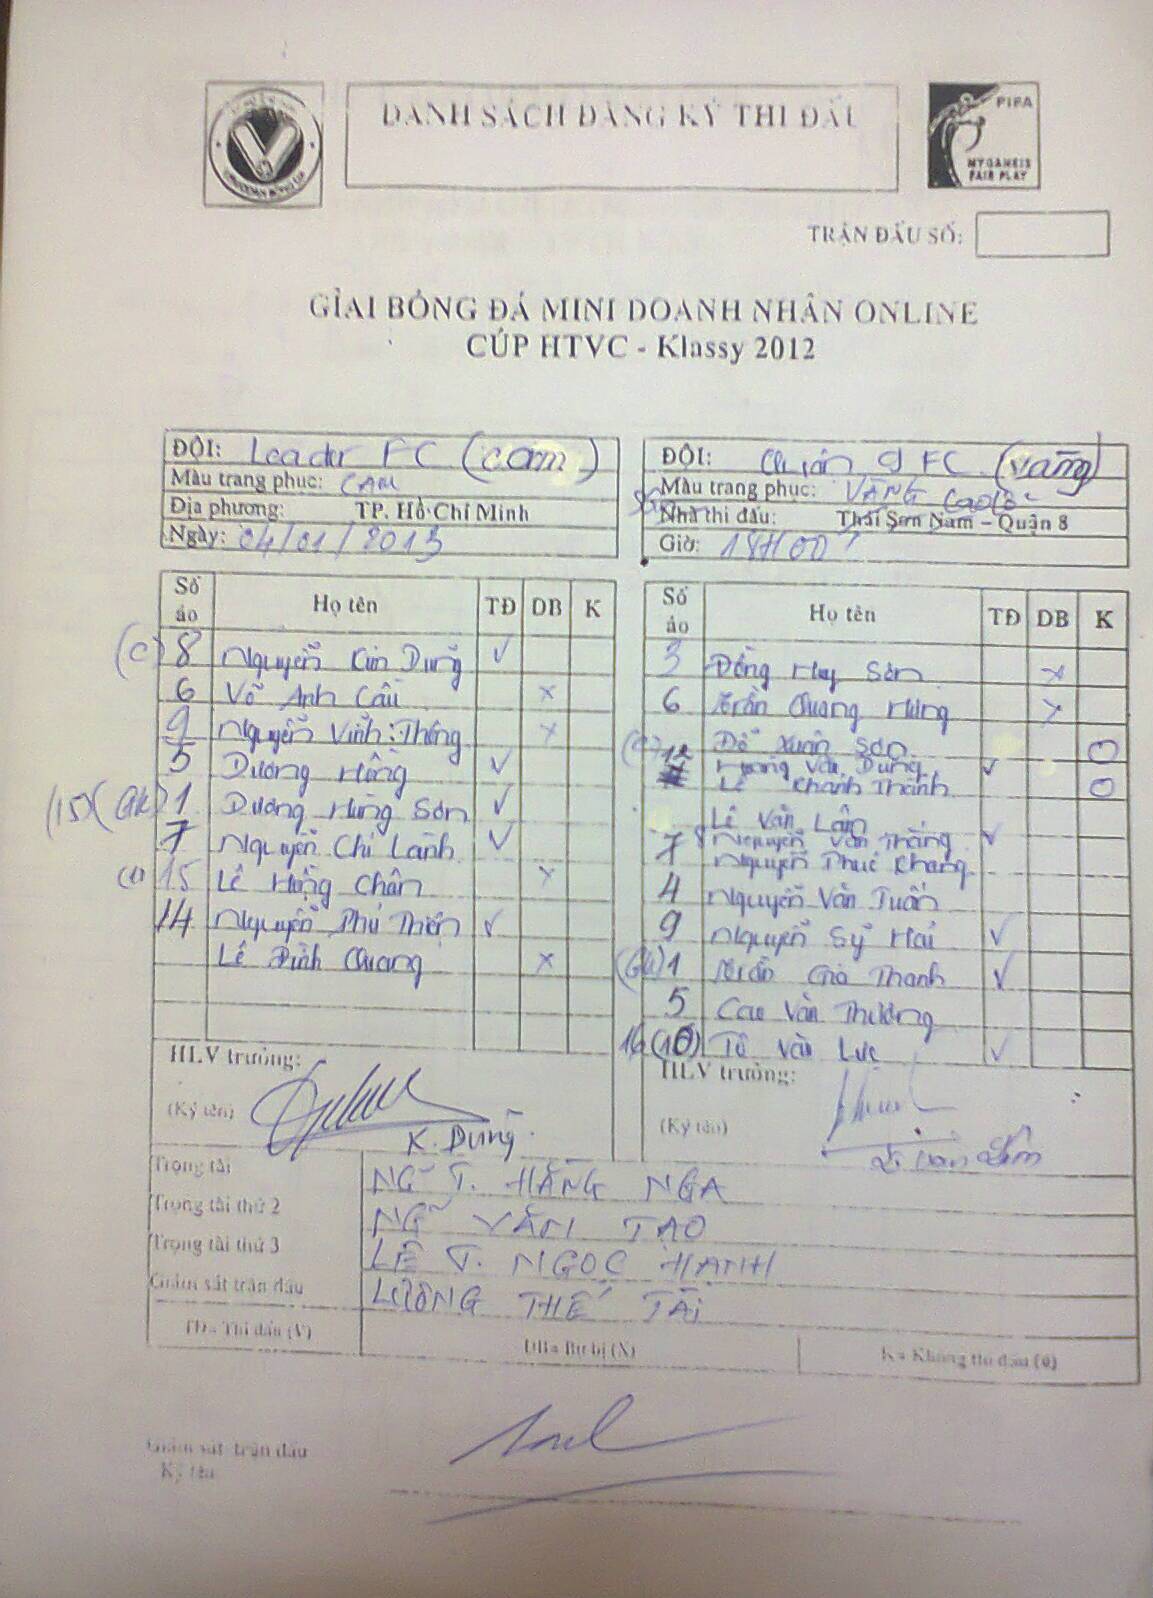 DANH SÁCH ĐĂNG KÝ THI ĐẤU
FIFA
MY GAME IS
FAIR PLAY
TRẬN ĐẤU SỐ:
GIẢI BÓNG ĐÁ MINI DOANH NHÂN ONLINE
CÚP HTVC - Klassy 2012
ĐỘI: Leader FC (cam)
Màu trang phục: CAM
Địa phương: TP. Hồ Chí Minh
Ngày: 04/01/2013
ĐỘI: FC (vàng)
Màu trang phục: VÀNG
Nhà thi đấu: Thái Sơn Nam – Quận 8
Giờ: 18H00
Số áo Họ tên TĐ DB K
(C) 8 Nguyễn Kim Dũng ✓
6 Võ Anh Cầu x
9 Nguyễn Vinh Thông x
5 Dương Hồng ✓
(15) (GK) 1 Dương Hùng Sơn ✓
7 Nguyễn Chí Lành ✓
(1) 15 Lê Hồng Chân x
14 Nguyễn Phú Thiện ✓
Lê Đình Quang x
HLV trưởng:
(Ký tên)
K. Dũng
Số áo Họ tên TĐ DB K
3 Đồng Huy Sơn x
6 Trần Quang Hưng x
(C) Đỗ Xuân Sơn O
12 Hoàng Văn Dũng ✓
Lê Khánh Thành O
Lê Văn Lâm
8 Nguyễn Văn Thắng ✓
7 Nguyễn Phúc Khang
4 Nguyễn Văn Tuấn
9 Nguyễn Sỹ Hải ✓
(GK) 1 Trần Gia Thanh ✓
5 Cao Văn Thương
16 (10) Tô Văn Lực ✓
HLV trưởng:
(Ký tên)
Trọng tài NG~ T. HẰNG NGA
Trọng tài thứ 2 NG~ VĂN TẠO
Trọng tài thứ 3 LÊ T. NGỌC HẠNH
Giám sát trận đấu LƯƠNG THẾ TÀI
TĐ= Thi đấu (V) DB= Dự bị (X) K= Không thi đấu (0)
Giám sát trận đấu
Ký tên